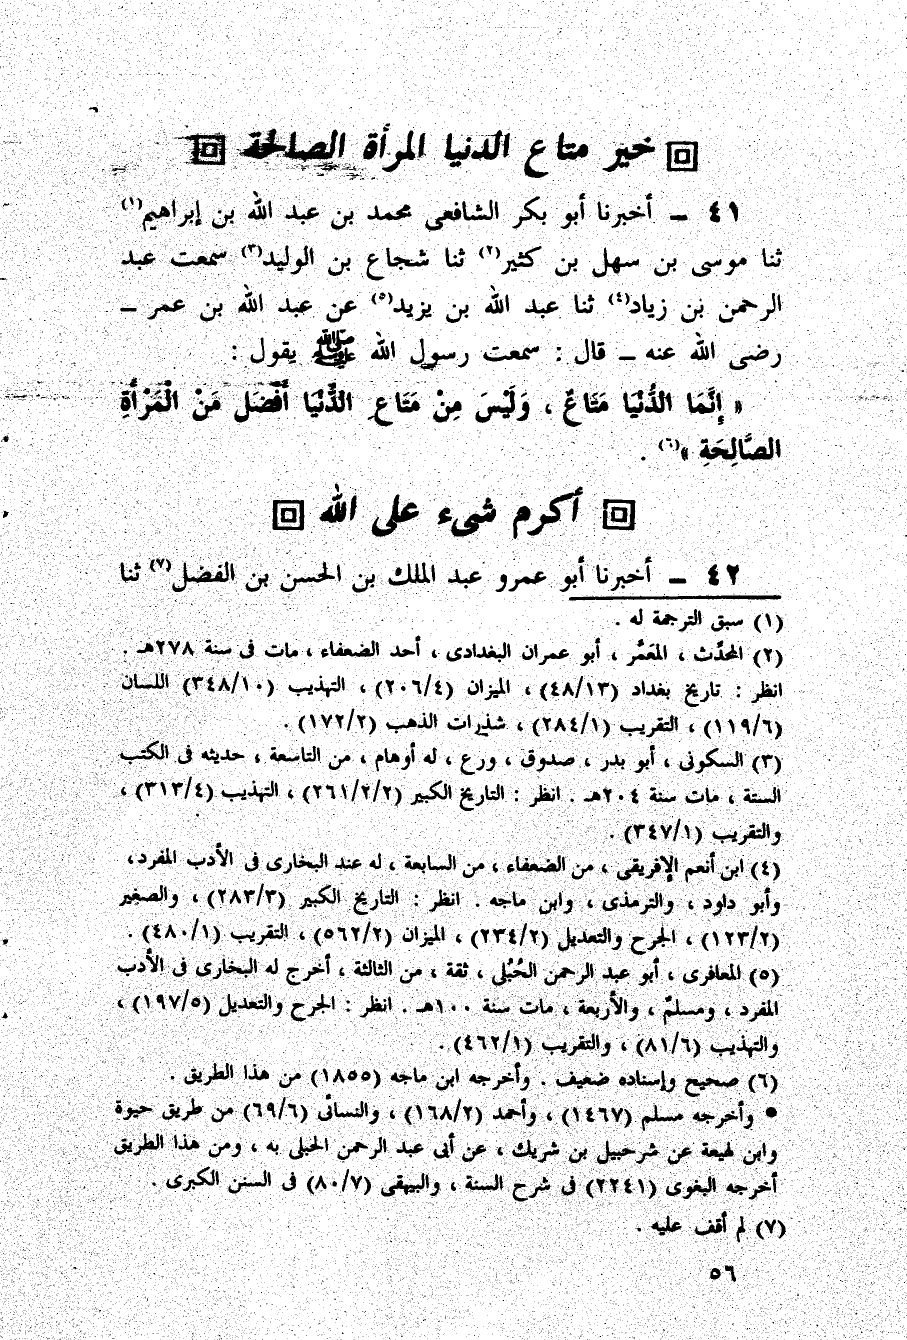 خير متاع الدنيا المرأة الصالحة
٤١ ــ أخبرنا أبو بكر الشافعى محمد بن عبد الله بن إبراهيم(١)
ثنا موسى بن سهل بن كثير(٢) ثنا شجاع بن الوليد(٣) سمعت عبد
الرحمن بن زياد(٤) ثنا عبد الله بن يزيد(٥) عن عبد الله بن عمر ــ
رضى الله عنه ــ قال : سمعت رسول الله ﷺ يقول :
« إِنَّمَا الدُّنْيَا مَتَاعٌ ، وَلَيْسَ مِنْ مَتَاعِ الدُّنْيَا أَفْضَل مَنْ الْمَرْأَةِ
الصَّالِحَةِ »(٦) .
أكرم شىء على الله
٤٢ ــ أخبرنا أبو عمرو عبد الملك بن الحسن بن الفضل(٧) ثنا
(١) سبق الترجمة له .
(٢) المحدِّث ، المعَمَّر ، أبو عمران البغدادى ، أحد الضعفاء ، مات فى سنة ٢٧٨هـ .
انظر : تاريخ بغداد (٤٨/١٣) ، الميزان (٢٠٦/٤) ، التهذيب (٣٤٨/١٠) اللسان
(١١٩/٦) ، التقريب (٢٨٤/١) ، شذرات الذهب (١٧٢/٢) .
(٣) السكونى ، أبو بدر ، صدوق ، ورع ، له أوهام ، من التاسعة ، حديثه فى الكتب
الستة ، مات سنة ٢٠٤هـ . انظر : التاريخ الكبير (٢٦١/٢/٢) ، التهذيب (٣١٣/٤) ،
والتقريب (٣٤٧/١) .
(٤) ابن أنعم الإفريقى ، من الضعفاء ، من السابعة ، له عند البخارى فى الأدب المفرد،
وأبو داود ، والترمذى ، وابن ماجه . انظر : التاريخ الكبير (٢٨٣/٣) ، والصغير
(١٢٣/٢) ، الجرح والتعديل (٢٣٤/٢) ، الميزان (٥٦٢/٢) ، التقريب (٤٨٠/١) .
(٥) المعافرى ، أبو عبد الرحمن الحُبُلى ، ثقة ، من الثالثة ، أخرج له البخارى فى الأدب
المفرد ، ومسلمٌ ، والأربعة ، مات سنة ١٠٠هـ . انظر : الجرح والتعديل (١٩٧/٥) ،
والتهذيب (٨١/٦) ، والتقريب (٤٦٢/١) .
(٦) صحيح وإسناده ضعيف . وأخرجه ابن ماجه (١٨٥٥) من هذا الطريق .
● وأخرجه مسلم (١٤٦٧) ، وأحمد (١٦٨/٢) ، والنسائى (٦٩/٦) من طريق حيوة
وابن لهيعة عن شرحبيل بن شريك ، عن أبى عبد الرحمن الحبلى به ، ومن هذا الطريق
أخرجه البغوى (٢٢٤١) فى شرح السنة ، والبيهقى (٨٠/٧) فى السنن الكبرى .
(٧) لم أقف عليه .
٥٦